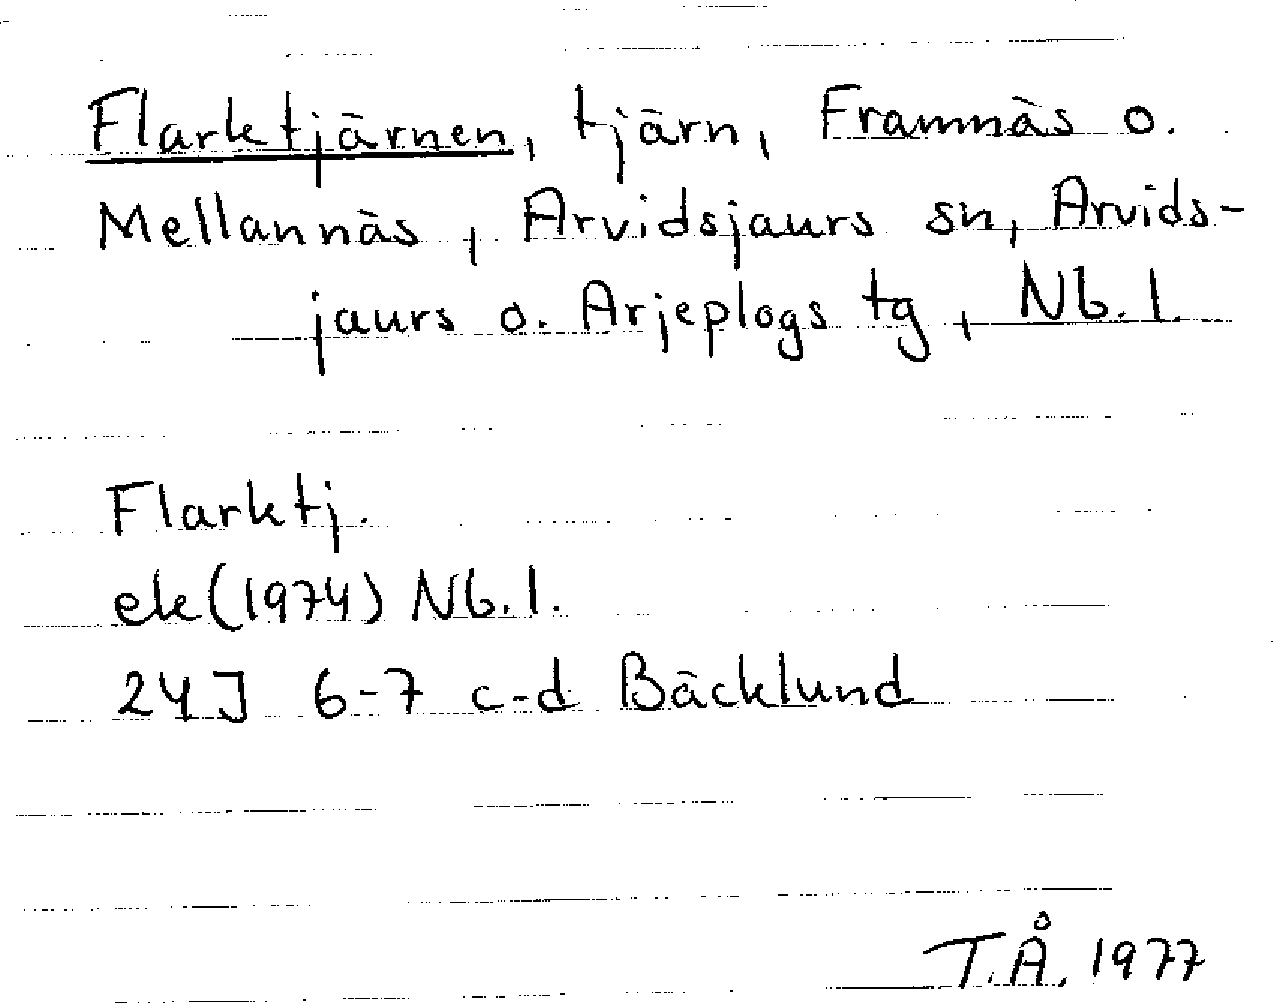 Flarktjärnen, tjärn, Framnäs o.
Mellannäs, Arvidsjaurs sn, Arvids-
jaurs o. Arjeplogs tg, Nb. l.
Flarktj.
ek(1974) Nb. l.
24J 6-7 c-d Bäcklund
T.Å. 1977